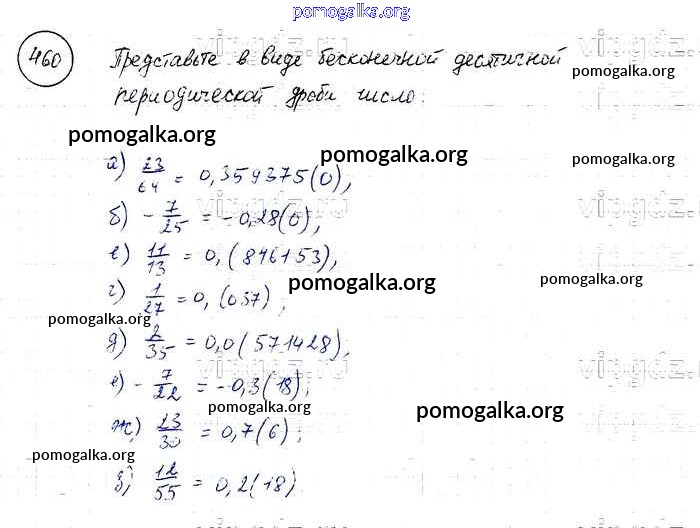 pomogalka.org
460 Представьте в виде бесконечной десятичной
pomogalka.org
периодической дроби число:
pomogalka.org
pomogalka.org
а) 23/64 = 0,359375(0),
б) - 7/25 = -0,28(0),
в) 11/13 = 0,(846153),
pomogalka.org
pomogalka.org
г) 1/27 = 0,(037);
pomogalka.org
д) 2/35 = 0,0(571428),
е) - 7/22 = -0,3(18);
pomogalka.org
pomogalka.org
ж) 23/30 = 0,7(6);
pomogalka.org
з) 12/55 = 0,2(18)